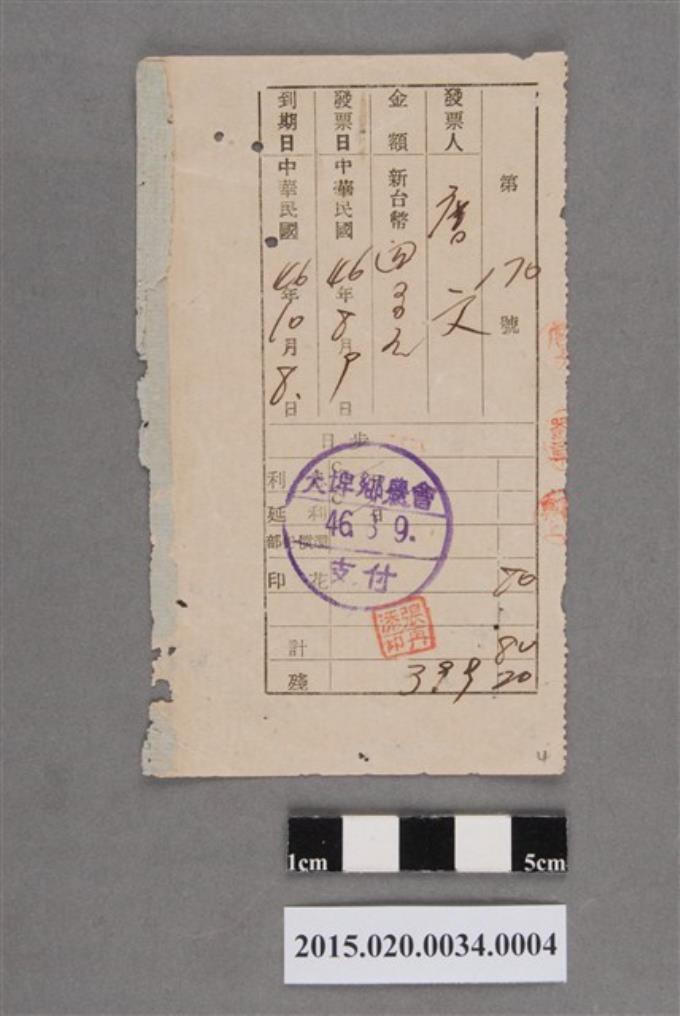 第 170 號
發票人 唐文
金額 新台幣 四百元
發票日 中華民國 46年8月9日
到期日 中華民國 46年10月8日
日步
利息
延利 日
印花 80
計 80
殘 399 20
大埤鄉農會
46. 8 9.
支付
張再添印
4
1cm 5cm
2015.020.0034.0004